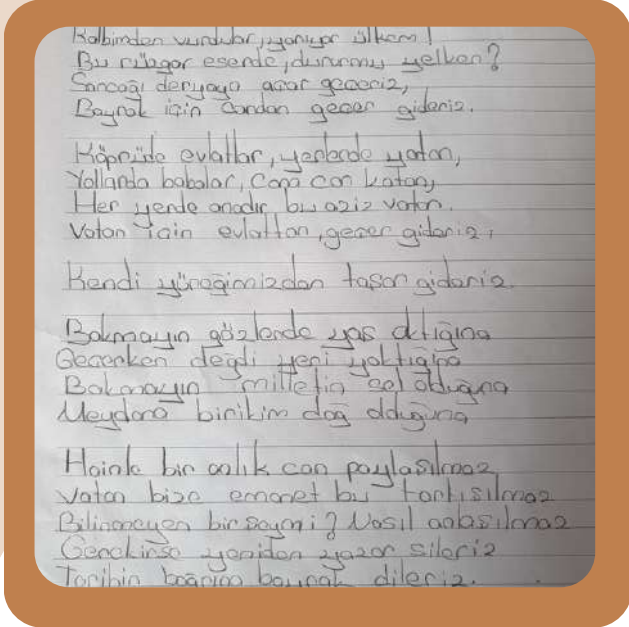 Kalbimden vurdular, yanıyor ülkem!
Bu rüzgar esende, durur mu yelken?
Sancağı deryaya açar geçeriz,
Bayrak için candan geçer gideriz.
Köprüde evlatlar, yerlerde yatan,
Yollarda babalar, cana can katan,
Her yerde anadır bu aziz vatan.
Vatan için evlattan, geçer gideriz,
Kendi yüreğimizden taşar gideriz.
Bakmayın gözlerde yaş aktığına
Geçerken değdi yeri yaktığına
Bakmayın milletin sel olduğuna
Meydana birikim dağ olduğuna
Hainle bir anlık can paylaşılmaz
Vatan bize emanet bu tartışılmaz
Bilinmeyen bir şeymi? Nasıl anlaşılmaz
Gerekirse yeniden yazar sileriz
Tarihin bağrına bayrak dileriz.